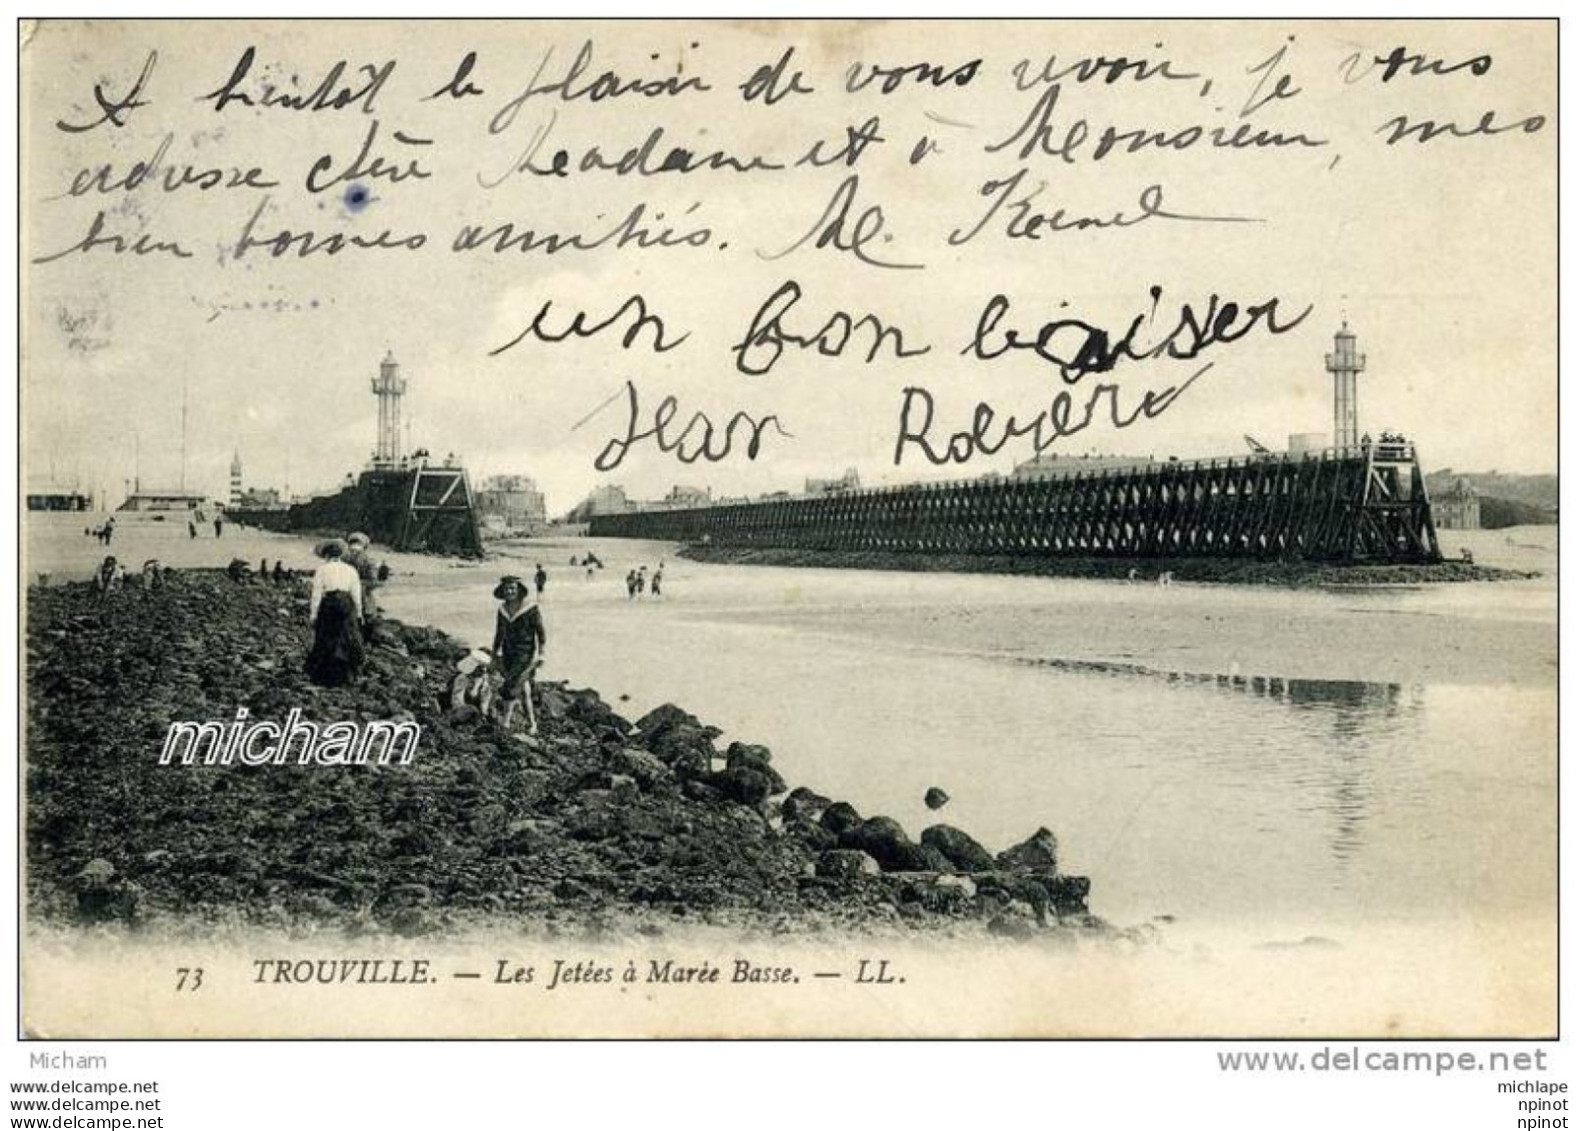 A bientôt le plaisir de vous revoir, je vous
adresse chère Madame et à Monsieur, mes
bien bonnes amitiés. M.
un bon baiser
Jean
micham
73 TROUVILLE. — Les Jetées à Marée Basse. — LL.
Micham
www.delcampe.net
www.delcampe.com
www.delcampe.com
www.delcampe.com
michlape
npinot
npinot